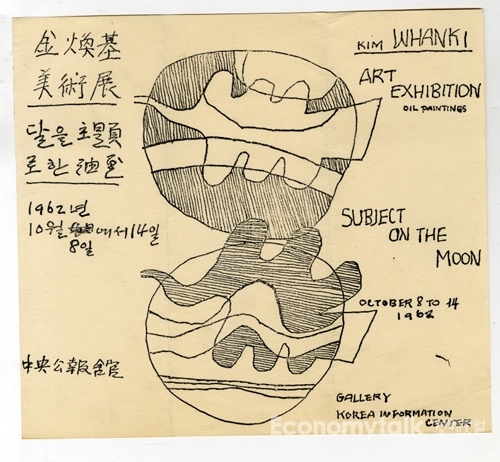 金煥基
美術展
달을 主題
로 한 油畵
1962년
10월 에서 14일
8일
中央公報館
KIM WHANKI
ART
EXHIBITION
OIL PAINTINGS
SUBJECT
ON THE
MOON
OCTOBER 8 TO 14
1962
GALLERY
KOREA INFORMATION
CENTER
Economytalk